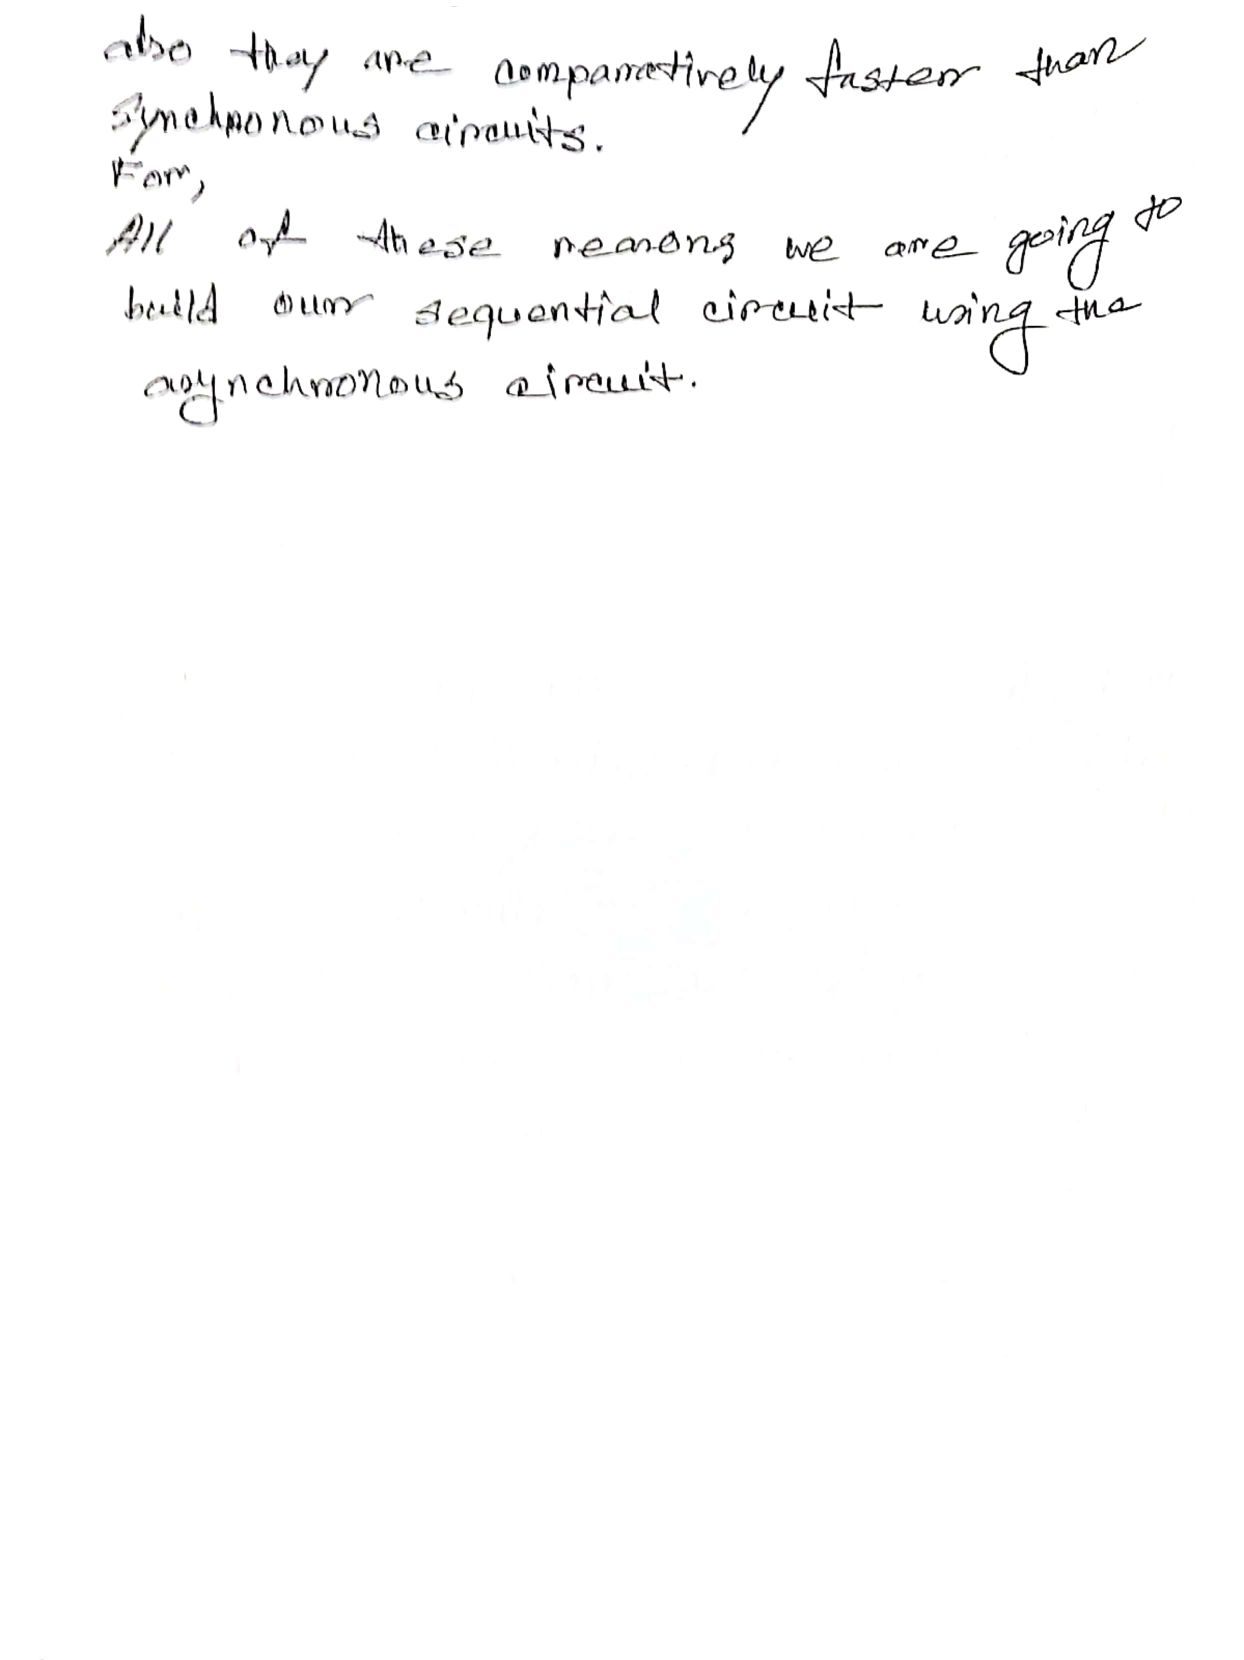 also they are comparatively faster than
synchronous circuits.
For,
All of these reasons we are going to
build our sequential circuit using the
asynchronous circuit.